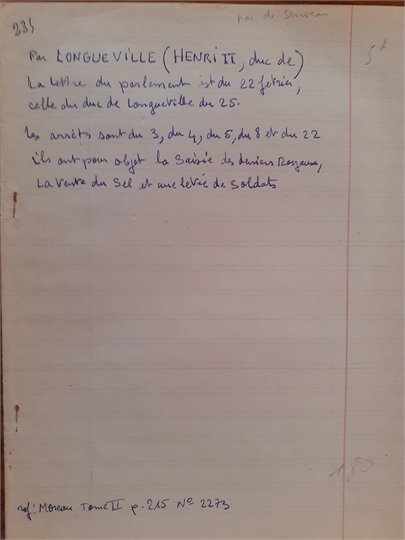 235
Par LONGUEVILLE (HENRI II, duc de)
La lettre du parlement est du 22 fevrier,
celle du duc de Longueville du 25.
Les arrêts sont du 3, du 4, du 5, du 8 et du 22
ils ont pour objet la Saisie des deniers Royaux,
La Vente du Sel et une levée de Soldats
ref: Moreau Tome II p. 215 No 2273